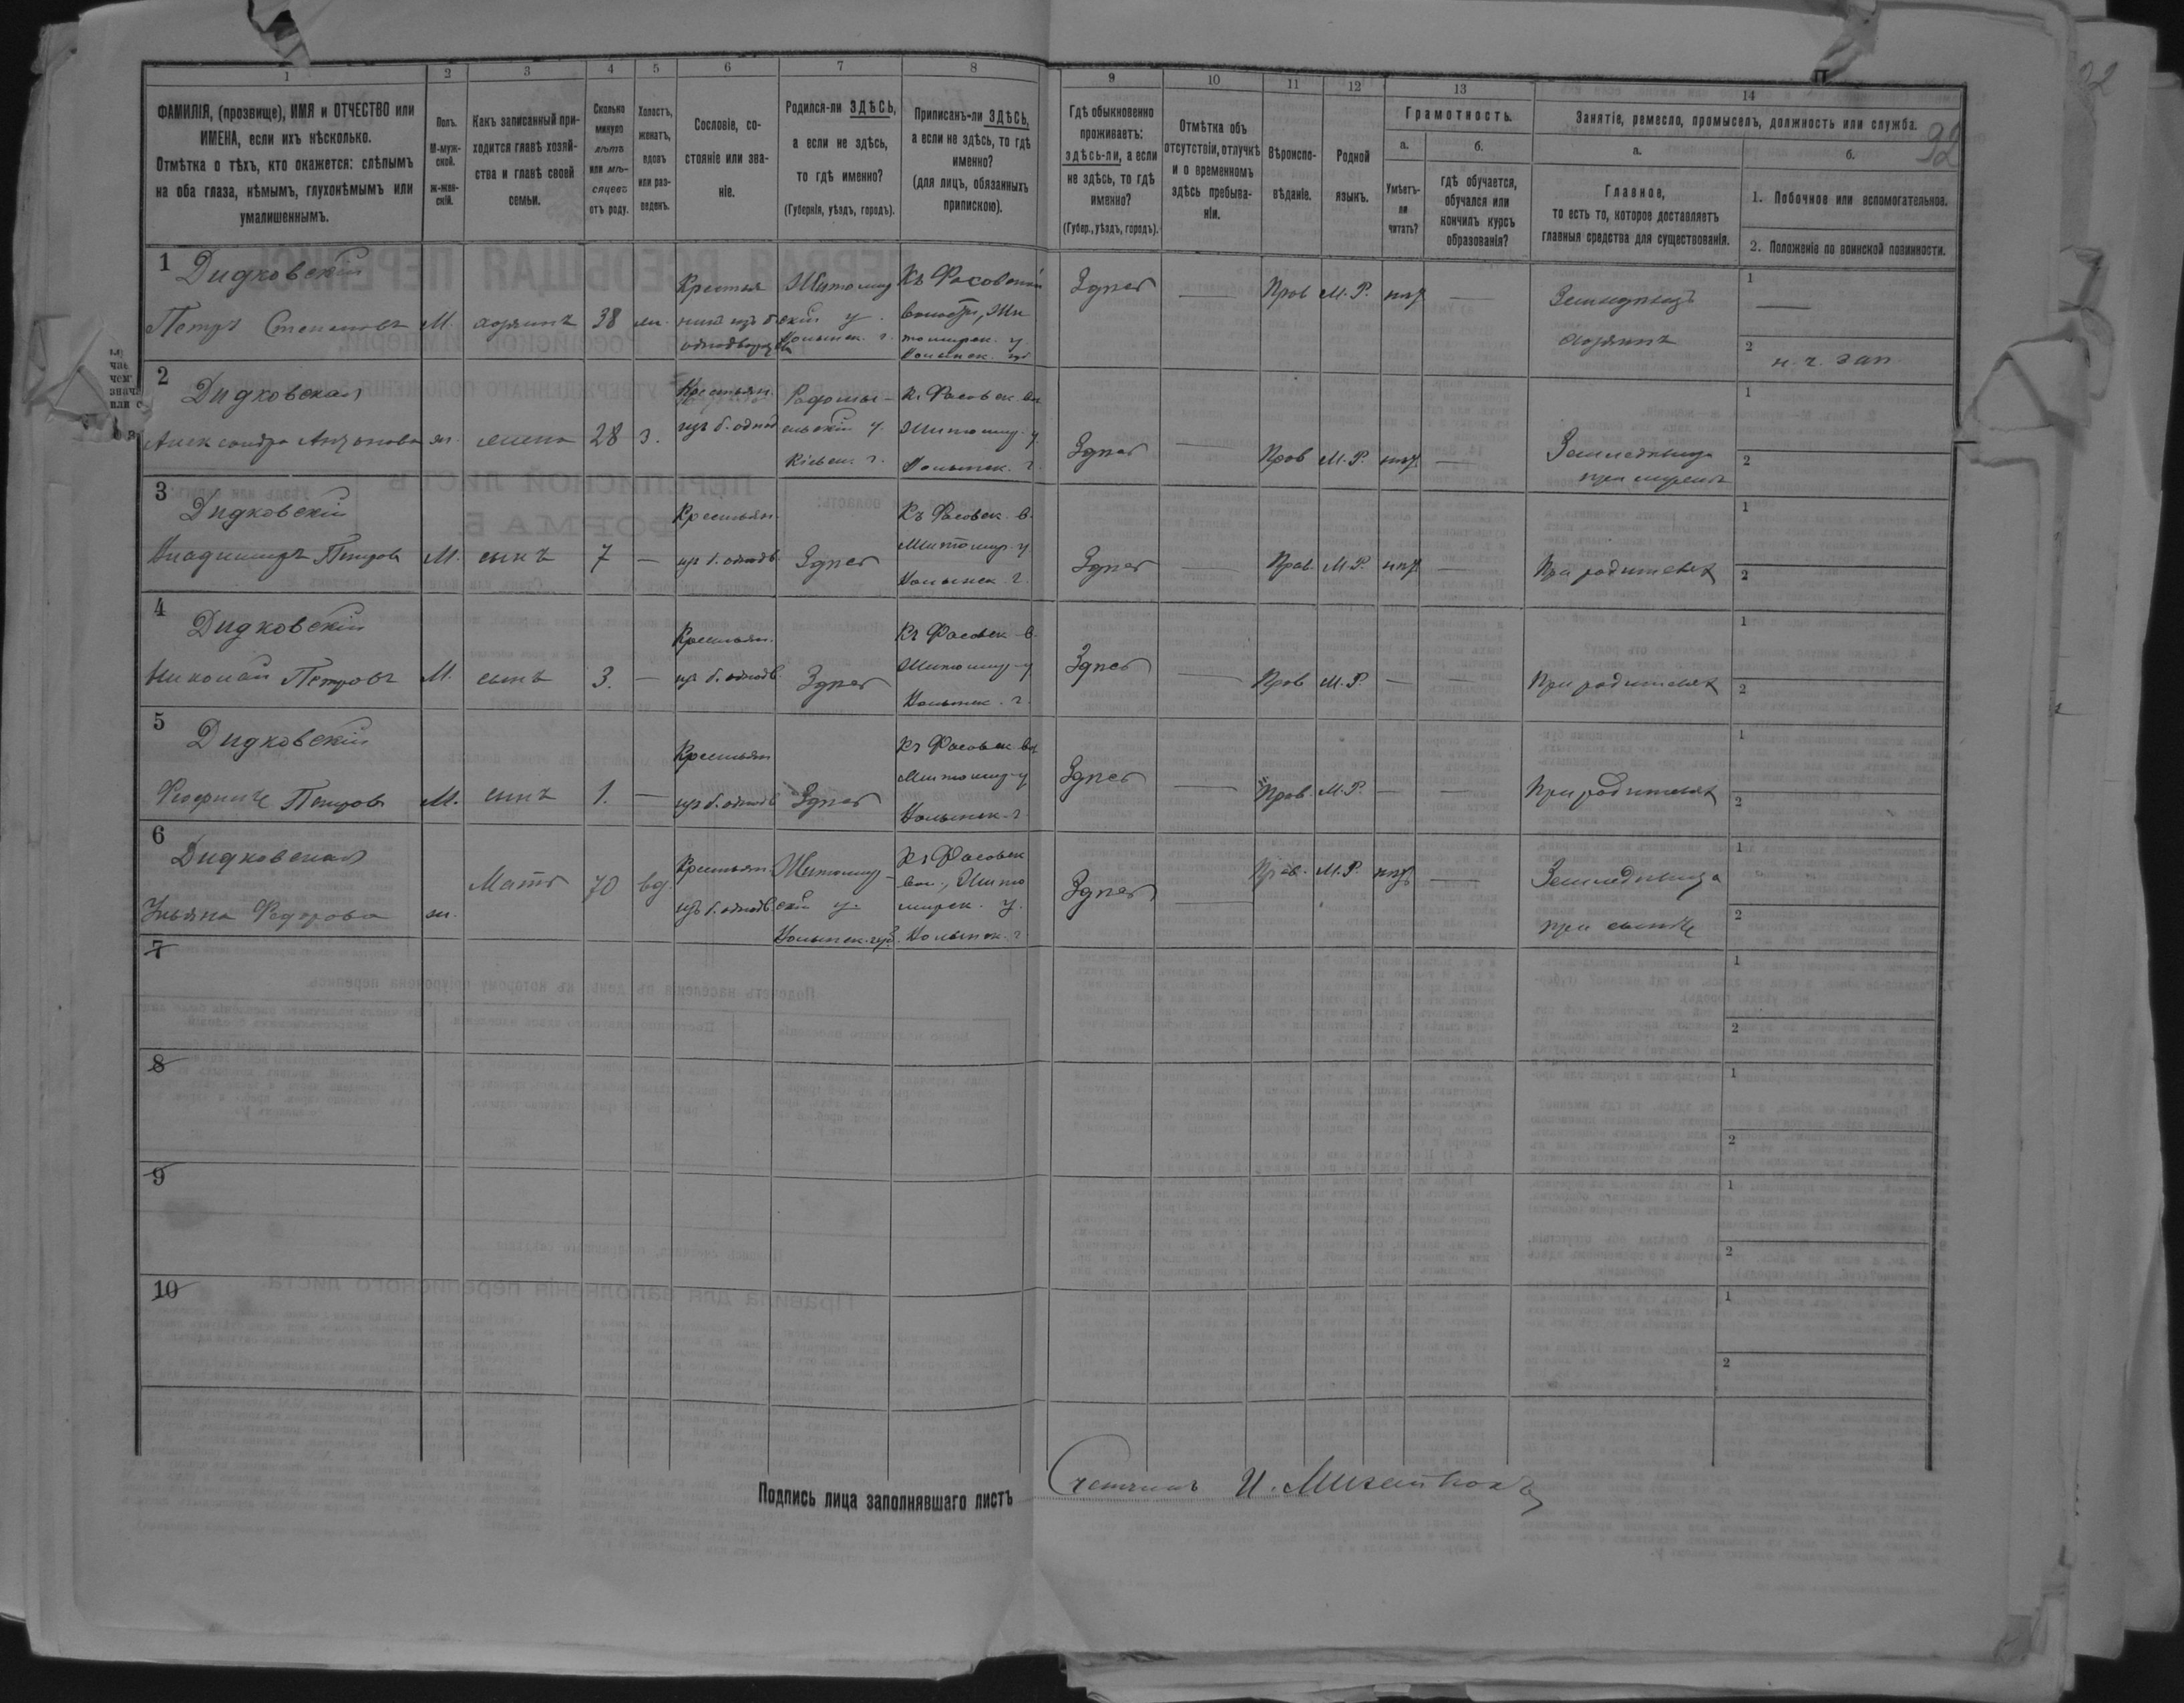 1 2 3 4 5 6 7 8 9 10 11 12 13 14
ФАМИЛІЯ, (прозвище), ИМЯ и ОТЧЕСТВО или
ИМЕНА, если ихъ нѣсколько.
Отмѣтка о тѣхъ, кто окажется: слѣпымъ
на оба глаза, нѣмымъ, глухонѣмымъ или
умалишеннымъ.
Полъ.
М-муж-
ской.
ж-жен-
скій.
Какъ записанный при-
ходится главѣ хозяй-
ства и главѣ своей
семьи.
Сколько
минуло
лѣтъ
или мѣ-
сяцевъ
отъ роду.
Холостъ,
женатъ,
вдовъ
или раз-
веденъ.
Сословіе, со-
стояніе или зва-
ніе.
Родился-ли ЗДѢСЬ,
а если не здѣсь,
то гдѣ именно?
(Губернія, уѣздъ, городъ).
Приписанъ-ли ЗДѢСЬ,
а если не здѣсь, то гдѣ
именно?
(для лицъ, обязанныхъ
припискою).
Гдѣ обыкновенно
проживаетъ:
здѣсь-ли, а если
не здѣсь, то гдѣ
именно?
(Губер., уѣздъ, городъ).
Отмѣтка объ
отсутствіи, отлучкѣ
и о временномъ
здѣсь пребыва-
ніи.
Вѣроиспо-
вѣданіе.
Родной
языкъ.
Грамотность.
а.
Умѣетъ-
ли
читать?
б.
гдѣ обучается,
обучался или
кончилъ курсъ
образованія?
Занятіе, ремесло, промыселъ, должность или служба.
92
а.
Главное,
то есть то, которое доставляетъ
главныя средства для существованія.
б.
1. Побочное или вспомогательное.
2. Положеніе по воинской повинности.
1 Дидковскій
Петръ Степановъ М. хозяинъ 38 жен.
Крестья
нинъ изъ б.
однодворцевъ
Житомир
скій у.
Волынск. г.
Къ Фасовской
волости, Жи
томирск. у.
Волынск. губ.
Здѣсь — Прав М.Р. нѣтъ —
Земледѣлецъ
хозяинъ
1 —
2 н. ч. зап.
2 Дидковская
Александра Антонова ж. жена 28 з.
Крестьян.
изъ б. однод
Радомы-
сльскій у.
Кіевск. г.
Къ Фасовск. вл
Житомир. у.
Волынск. г.
Здѣсь — Прав М.Р. нѣтъ —
Земледѣлица
при мужѣ
1
2
3 Дидковскій
Владиміръ Петровъ М. сынъ 7 —
Крестьян.
изъ б. однодв.
Здѣсь
Къ Фасовск. в.
Житомир. у.
Волынск. г.
Здѣсь — Прав. М.Р. нѣтъ —
При родителяхъ
1
2
4 Дидковскій
Николай Петровъ М. сынъ 3. —
Крестьян.
изъ б. однодв.
Здѣсь
Къ Фасовск. в.
Житомир. у
Волынск. г.
Здѣсь — Прав М.Р. — —
При родителяхъ
1
2
5 Дидковскій
Петровъ М. сынъ 1. —
Крестьян
изъ б. однодв
Здѣсь
Къ Фасовск. вл
Житомир. у
Волынск. г
Здѣсь — Прав. М.Р. — —
При родителяхъ
1
2
6 Дидковская
Ульяна Федорова ж. Мать 70 вд.
Крестьян.
изъ б. однодв.
Житомир-
скій у.
Волынск. губ.
Къ Фасовск
вол., Жито
мирск. у.
Волынск. г
Здѣсь — Прав. М.Р. нѣтъ —
Земледѣлица
при сынѣ
1
2
7
1
2
8
1
2
9
1
2
10
1
2
Подпись лица заполнявшаго листъ Счетчикъ И.